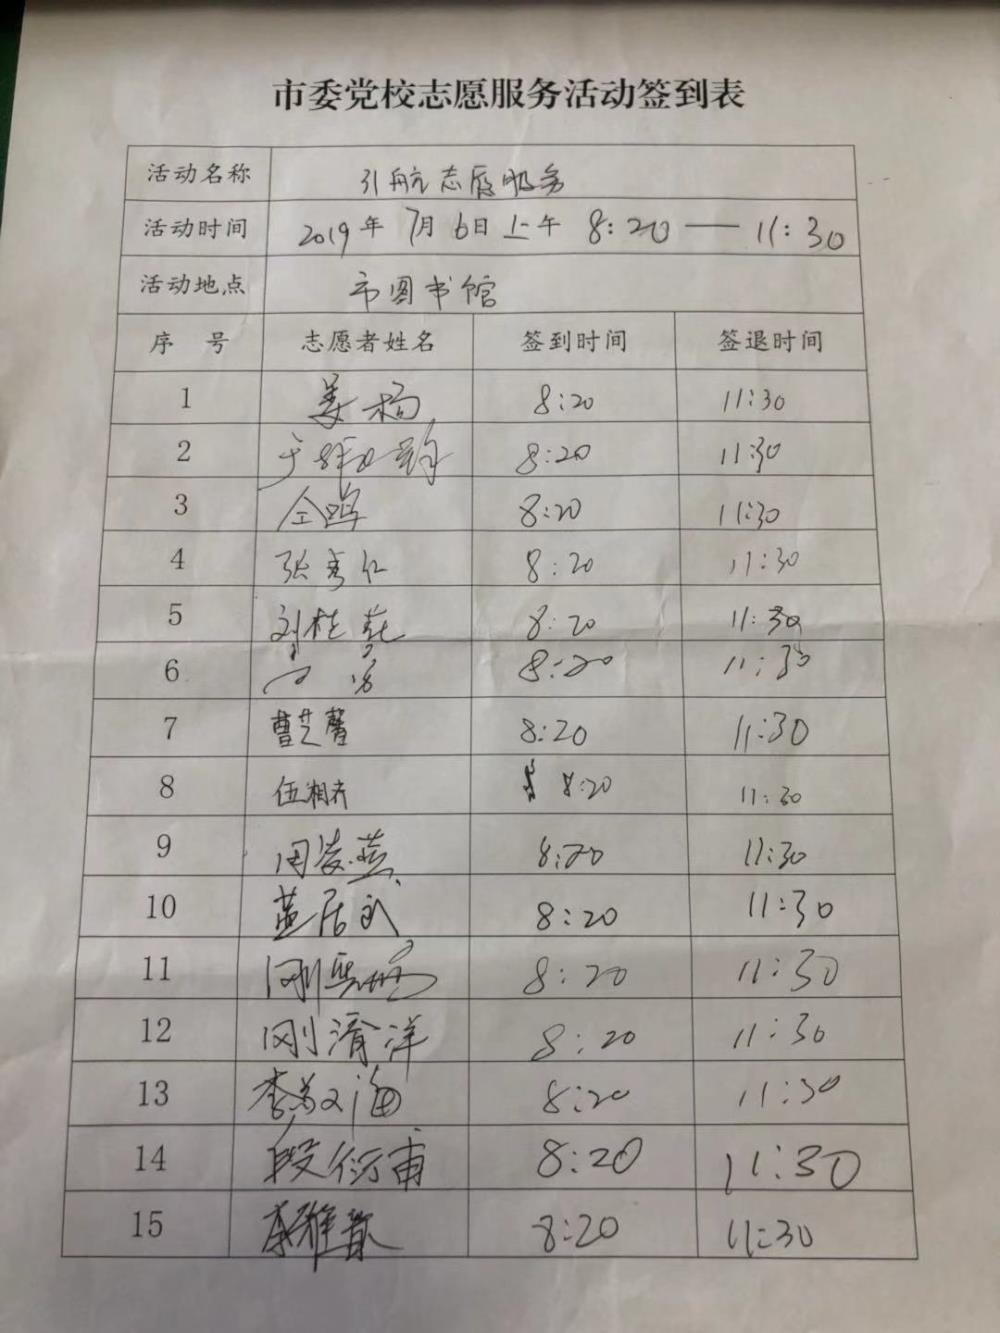 市委党校志愿服务活动签到表
活动名称 引航志愿服务
活动时间 2019年 7月 6日 上午 8:20 — 11:30
活动地点 市图书馆
序 号 志愿者姓名 签到时间 签退时间
1 姜杨 8:20 11:30
2 8:20 11:30
3 全鸣 8:20 11:30
4 张秀仁 8:20 11:30
5 刘桂花 8:20 11:30
6 8:20 11:30
7 曹芝馨 8:20 11:30
8 伍湘卉 8:20 11:30
9 周凌燕 8:20 11:30
10 蓝居 8:20 11:30
11 8:20 11:30
12 刚清洋 8:20 11:30
13 海 8:20 11:30
14 段衍甫 8:20 11:30
15 李雅歆 8:20 11:30